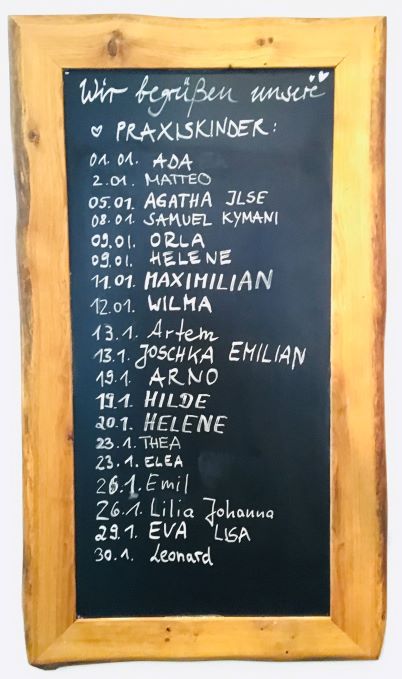 Wir begrüßen unsere
♡ PRAXISKINDER:
01.01. ADA
2.01. MATTEO
05.01. AGATHA ILSE
08.01. SAMUEL KYMANI
09.01. ORLA
09.01. HELENE
11.01 MAXIMILIAN
12.01. WILMA
13.1. Artem
13.1. JOSCHKA EMILIAN
19.1. ARNO
19.1. HILDE
20.1. HELENE
23.1. THEA
23.1. ELEA
26.1. Emil
26.1. Lilia Johanna
29.1. EVA LISA
30.1. Leonard